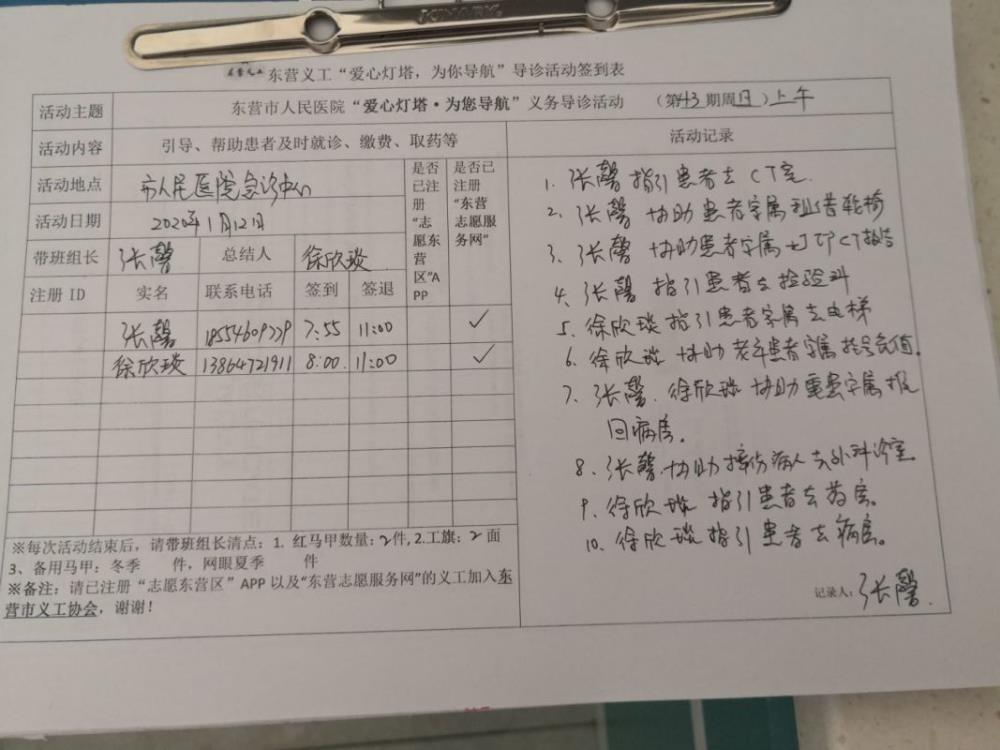 东营义工“爱心灯塔，为你导航”导诊活动签到表
活动主题 东营市人民医院“爱心灯塔·为您导航”义务导诊活动 （第43期周日）上午
活动内容 引导、帮助患者及时就诊、缴费、取药等
活动地点 市人民医院急诊中心
活动日期 2020年1月12日
带班组长 张馨 总结人 徐欣琰
注册 ID 实名 联系电话 签到 签退
是否已注册“志愿东营区”APP
是否已注册“东营志愿服务网”
张馨 18554609339 7:55 11:00 ✓
徐欣琰 13864721911 8:00 11:00 ✓
※每次活动结束后，请带班组长清点：1. 红马甲数量：2件, 2.工旗：2 面
3、备用马甲：冬季 件，网眼夏季 件
※备注：请已注册“志愿东营区”APP 以及“东营志愿服务网”的义工加入东
营市义工协会，谢谢！
活动记录
1. 张馨 指引患者去CT室.
2. 张馨 协助患者家属 借轮椅
3. 张馨 协助患者家属 打印CT报告
4. 张馨 指引患者去检验科
5. 徐欣琰 指引患者家属去电梯
6. 徐欣琰 协助老年患者家属挂号充值.
7. 张馨. 徐欣琰 协助重患家属
回病房.
8. 张馨. 协助摔伤病人去外科诊室
9. 徐欣琰 指引患者去药房.
10. 徐欣琰 指引患者去病房.
记录人：张馨.